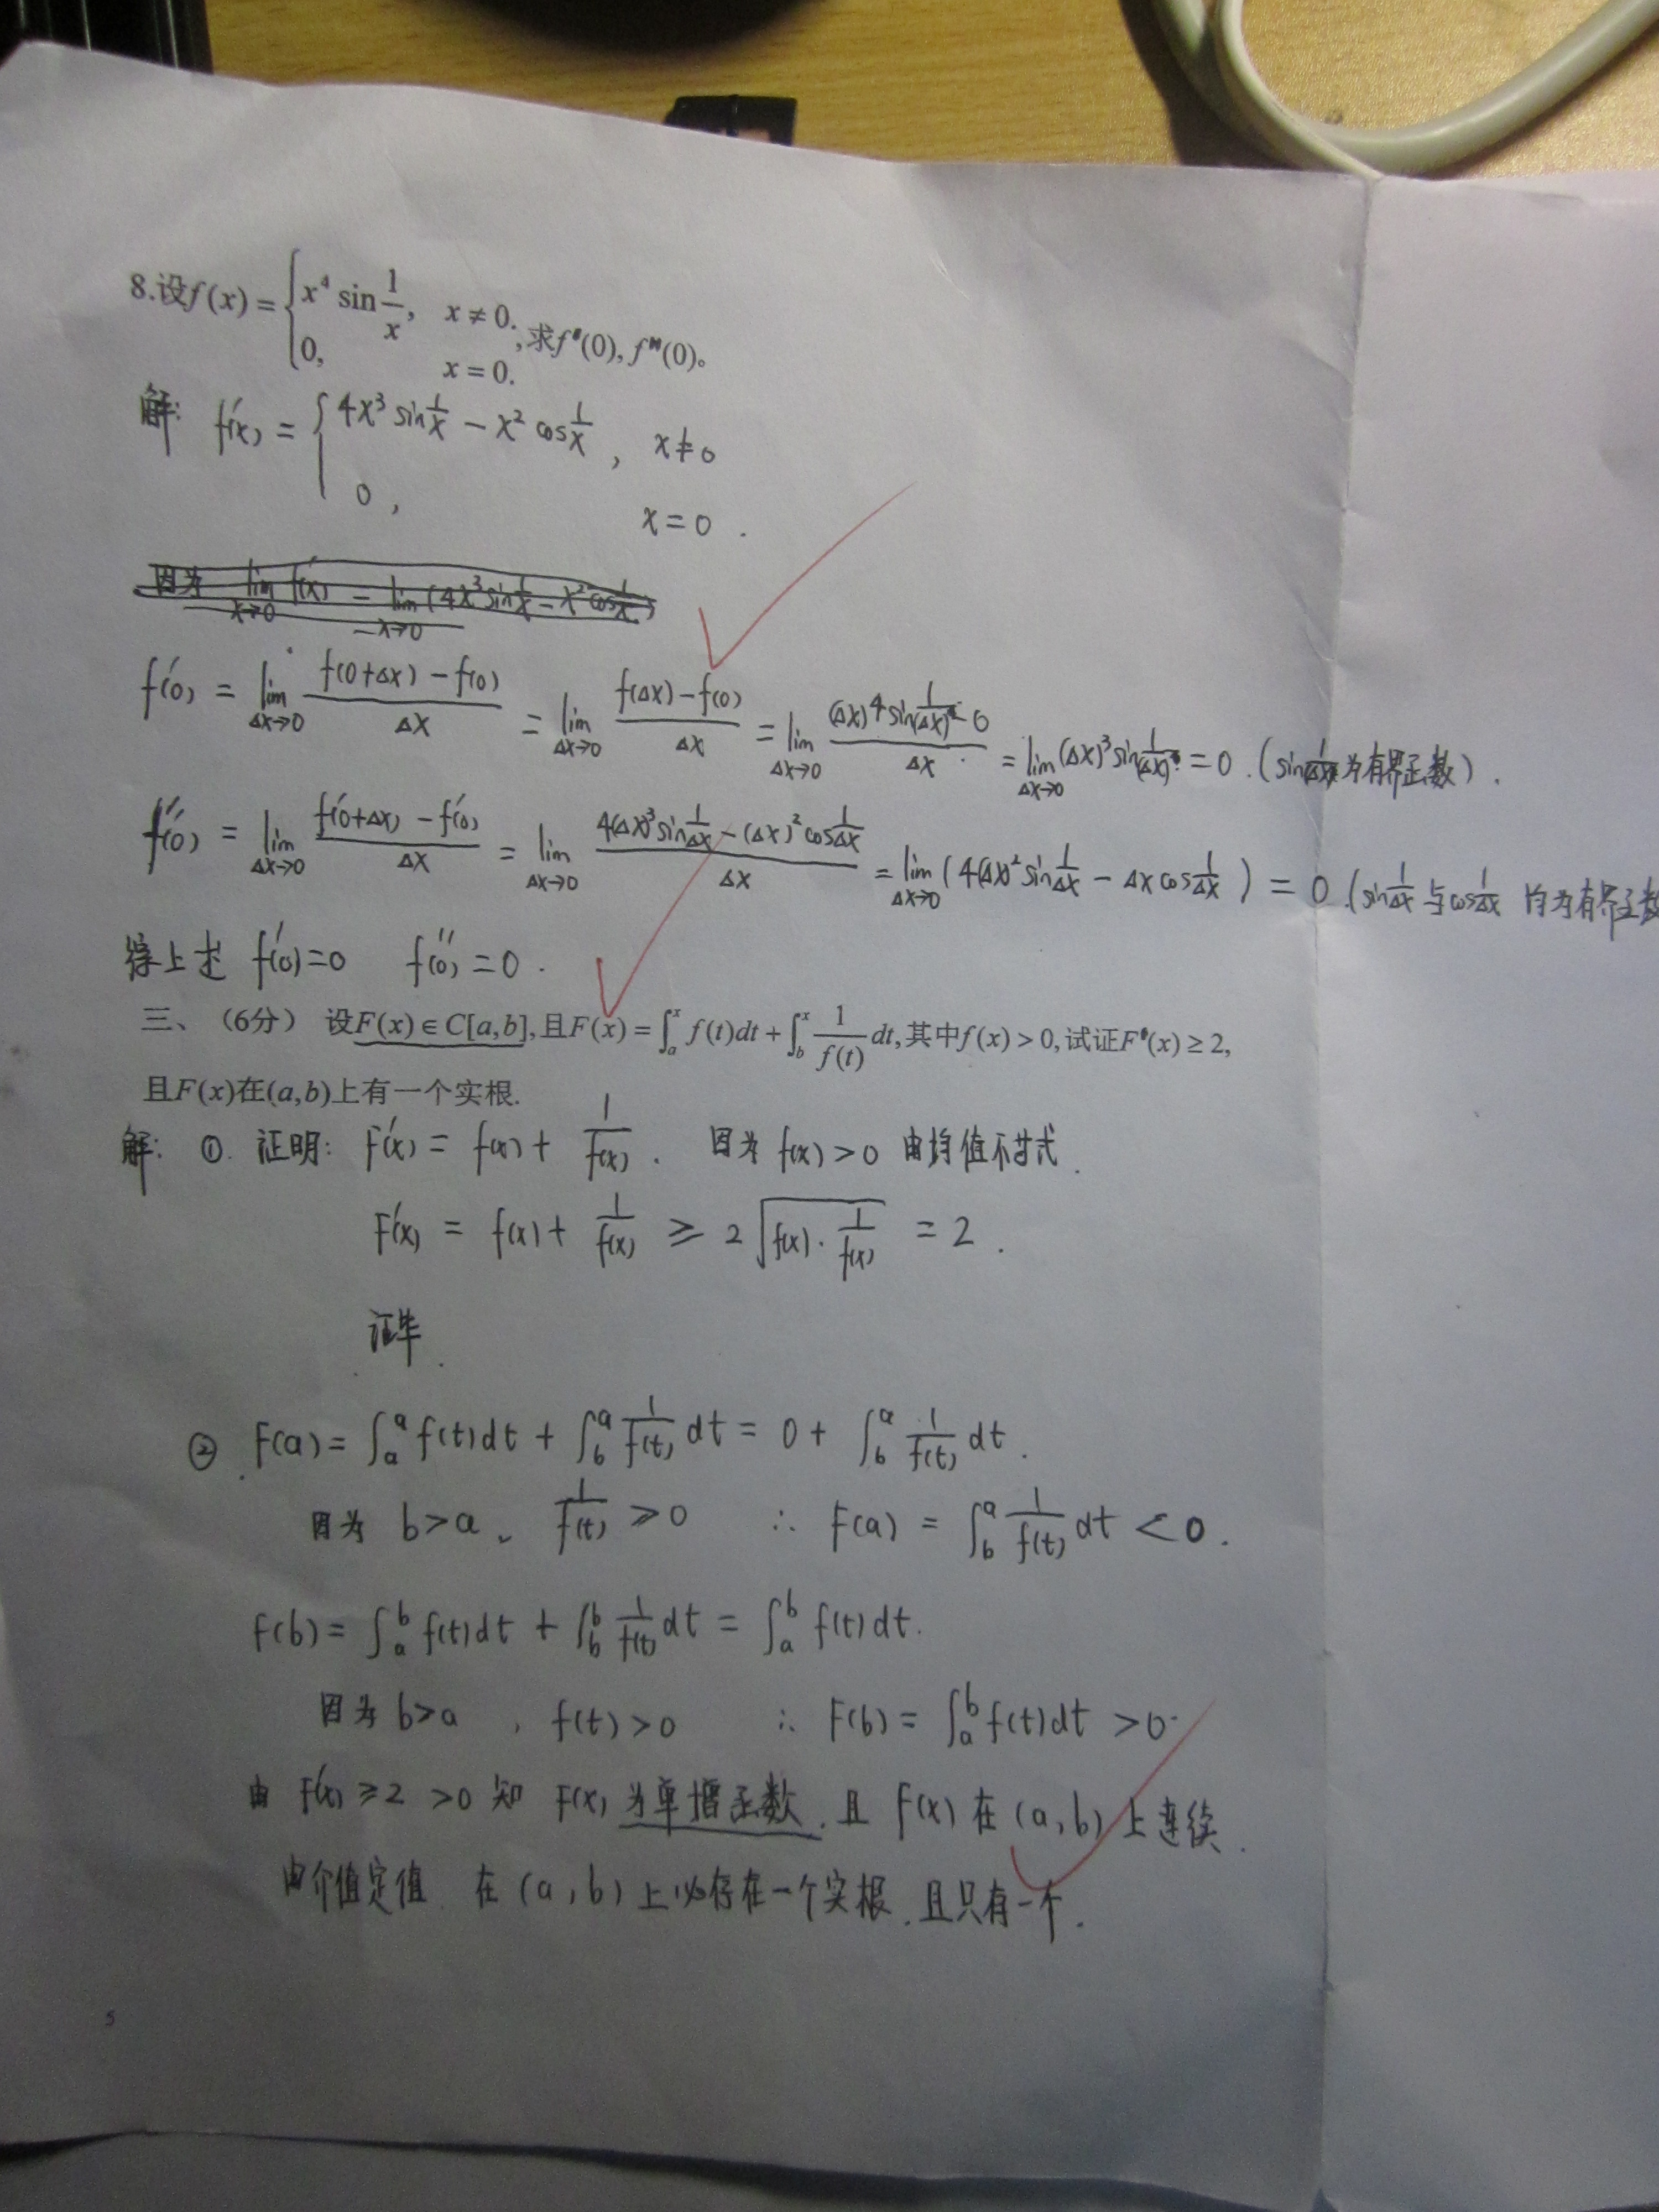 8.设f(x) = { x⁴ sin 1/x, x ≠ 0; 0, x = 0. ,求f′(0), f″(0)。
解: f′(x) = { 4x³ sin 1/x − x² cos 1/x , x≠0
0 , x = 0 .
因为 lim x→0 f′(x) = lim x→0 (4x³ sin 1/x − x² cos 1/x)
f′(0) = lim Δx→0 (f(0+Δx) − f(0))/Δx = lim Δx→0 (f(Δx) − f(0))/Δx = lim Δx→0 ((Δx)⁴ sin 1/(Δx) − 0)/Δx = lim Δx→0 (Δx)³ sin 1/(Δx) = 0 . (sin 1/Δx 为有界函数) .
f″(0) = lim Δx→0 (f′(0+Δx) − f′(0))/Δx = lim Δx→0 (4(Δx)³ sin 1/Δx − (Δx)² cos 1/Δx)/Δx = lim Δx→0 (4(Δx)² sin 1/Δx − Δx cos 1/Δx ) = 0 .(sin 1/Δx 与 cos 1/Δx 均为有界函数
综上述 f′(0)=0 f″(0)=0 .
三、（6分） 设F(x)∈C[a,b],且F(x) = ∫ₐˣ f(t)dt + ∫_b^x 1/f(t) dt,其中f(x) > 0,试证F′(x) ≥ 2,
且F(x)在(a,b)上有一个实根.
解: ①. 证明: F′(x) = f(x) + 1/f(x) . 因为 f(x) > 0 由均值不等式 .
F′(x) = f(x) + 1/f(x) ≥ 2√(f(x) · 1/f(x)) = 2 .
证毕 .
② . F(a) = ∫_a^a f(t)dt + ∫_b^a 1/f(t) dt = 0 + ∫_b^a 1/f(t) dt .
因为 b>a 、 1/f(t) ≥ 0 ∴ F(a) = ∫_b^a 1/f(t) dt < 0 .
F(b) = ∫_a^b f(t)dt + ∫_b^b 1/f(t) dt = ∫_a^b f(t)dt.
因为 b>a , f(t) > 0 ∴ F(b) = ∫_a^b f(t)dt > 0 .
由 F′(x) ≥ 2 > 0 知 F(x) 为单增函数 . 且 F(x) 在 (a, b) 上连续 .
由介值定值 . 在 (a, b) 上必存在一个实根 . 且只有一个 .
5